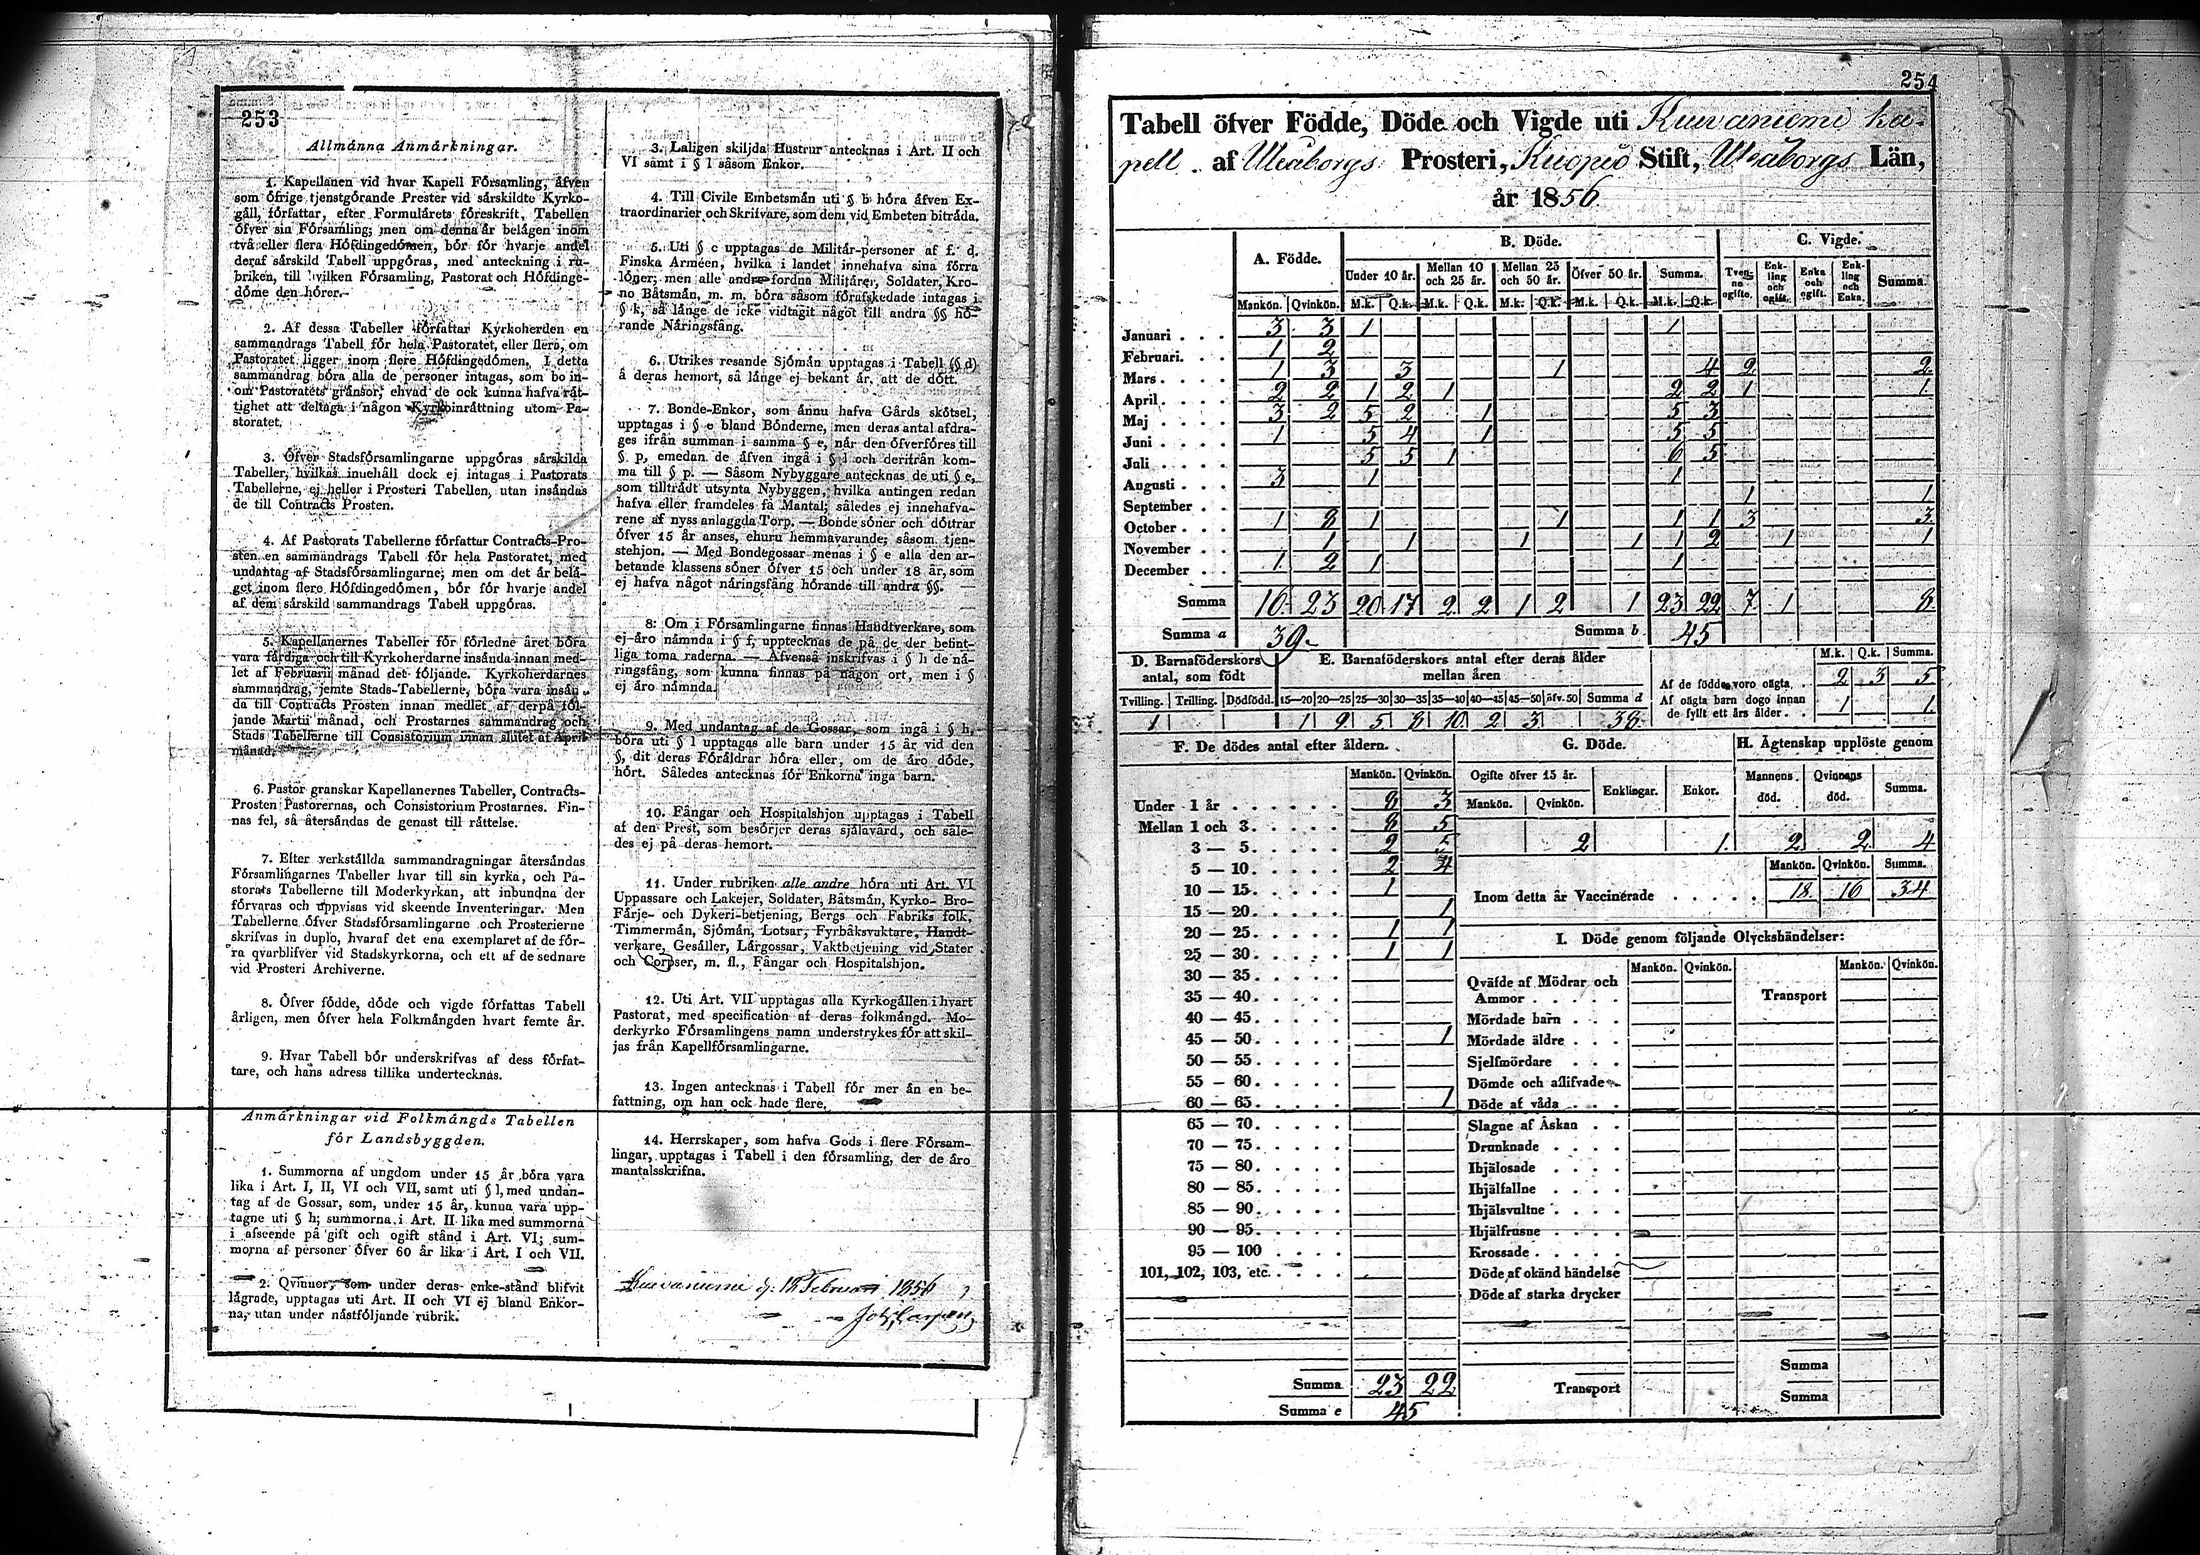 253
Allmånna Anmårkningar.
1. Kapellanen vid hvar Kapell Fôrsamling, åfven
som ôfrige tjenstgôrande Prester vid sårskildte Kyrko-
gåll, fôrfattar, efter Formulårets fôreskrift, Tabellen
ôfver sin Fôrsamling; men om denna år belågen inom
två eller flera Hôfdingedômen, bôr fôr hvarje andel
deraf sårskild Tabell uppgôras, med anteckning i ru-
briken, till hvilken Fôrsamling, Pastorat och Hôfdinge-
dôme den hôrer.
2. Af dessa Tabeller fôrfattar Kyrkoherden en
sammandrags Tabell fôr hela Pastoratet, eller flera, om
Pastoratet ligger inom flere Hôfdingedômen. I detta
sammandrag bôra alla de personer intagas, som bo in-
om Pastoratets grånsor, ehvad de ock kunna hafva råt-
tighet att deltaga i någon Kyrkoinråttning utom Pa-
storatet.
3. Ôfver Stadsfôrsamlingarne uppgôras sårskilda
Tabeller, hvilkas innehåll dock ej intagas i Pastorats
Tabellerne, ej heller i Prosteri Tabellen, utan insåndas
de till Contracts Prosten.
4. Af Pastorats Tabellerne fôrfattar Contracts-Pro-
sten en sammandrags Tabell fôr hela Pastoratet, med
undantag af Stadsfôrsamlingarne; men om det år belå-
get inom flere Hôfdingedômen, bôr fôr hvarje andel
af dem sårskild sammandrags Tabell uppgôras.
5. Kapellanernes Tabeller fôr fôrledne året bôra
vara fårdiga och till Kyrkoherdarne insånda innan med-
let af Februarii månad det fôljande. Kyrkoherdarnes
sammandrag, jemte Stads-Tabellerne, bôra vara insån-
da till Contracts Prosten innan medlet af derpå fôl-
jande Martii månad, och Prostarnes sammandrag och
Stads Tabellerne till Consistorium innan slutet af April
månad.
6. Pastor granskar Kapellanernes Tabeller, Contracts-
Prosten Pastorernas, och Consistorium Prostarnes. Fin-
nas fel, så återsåndas de genast till råttelse.
7. Efter verkstållda sammandragningar återsåndas
Fôrsamlingarnes Tabeller hvar till sin kyrka, och Pa-
storats Tabellerne till Moderkyrkan, att inbundna der
fôrvaras och uppvisas vid skeende Inventeringar. Men
Tabellerne ôfver Stadsfôrsamlingarne och Prosterierne
skrifvas in duplo, hvaraf det ena exemplaret af de fôr-
ra qvarblifver vid Stadskyrkorna, och ett af de sednare
vid Prosteri Archiverne.
8. Ôfver fôdde, dôde och vigde fôrfattas Tabell
årligen, men ôfver hela Folkmångden hvart femte år.
9. Hvar Tabell bôr underskrifvas af dess fôrfat-
tare, och hans adress tillika undertecknas.
Anmårkningar vid Folkmångds Tabellen
fôr Landsbyggden.
1. Summorna af ungdom under 15 år bôra vara
lika i Art. I, II, VI och VII, samt uti § l, med undan-
tag af de Gossar, som, under 15 år, kunna vara upp-
tagne uti § h; summorna i Art. II lika med summorna
i afseende på gift och ogift stånd i Art. VI; sum-
morna af personer ôfver 60 år lika i Art. I och VII.
2. Qvinnor, som under deras enke-stånd blifvit
lågrade, upptagas uti Art. II och VI ej bland Enkor-
na, utan under nåstfôljande rubrik.
3. Laligen skiljda Hustrur antecknas i Art. II och
VI samt i § l såsom Enkor.
4. Till Civile Embetsmån uti § b hôra åfven Ex-
traordinarier och Skrifvare, som dem vid Embeten bitråda.
5. Uti § c upptagas de Militår-personer af f. d.
Finska Arméen, hvilka i landet innehafva sina fôrra
lôner; men alle andre fordna Militårer, Soldater, Kro-
no Båtsmån, m. m. bôra såsom fôrafskedade intagas i
§ k, så långe de icke vidtagit något till andra §§ hô-
rande Nåringsfång.
6. Utrikes resande Sjômån upptagas i Tabell (§ d)
å deras hemort, så långe ej bekant år, att de dôtt.
7. Bonde-Enkor, som ånnu hafva Gårds skôtsel,
upptagas i § e bland Bônderne, men deras antal afdra-
ges ifrån summan i samma § e, når den ôfverfôres till
§ p, emedan de åfven ingå i § l och derifrån kom-
ma till § p. — Såsom Nybyggare antecknas de uti § e,
som tilltrådt utsynta Nybyggen, hvilka antingen redan
hafva eller framdeles få Mantal; således ej innehafva-
rene af nyss anlaggda Torp. — Bonde sôner och dôttrar
ôfver 15 år anses, ehuru hemmavarande, såsom tjen-
stehjon. — Med Bondegossar menas i § e alla den ar-
betande klassens sôner ôfver 15 och under 18 år, som
ej hafva något nåringsfång hôrande till andra §§.
8. Om i Fôrsamlingarne finnas Handtverkare, som
ej åro nåmnda i § f, upptecknas de på de der befint-
liga toma raderna. — Åfvenså inskrifvas i § h de nå-
ringsfång, som kunna finnas på någon ort, men i §
ej åro nåmnda.
9. Med undantag af de Gossar, som ingå i § h,
bôra uti § l upptagas alle barn under 15 år vid den
§, dit deras Fôråldrar hôra eller, om de åro dôde,
hôrt. Således antecknas fôr Enkorna inga barn.
10. Fångar och Hospitalshjon upptagas i Tabell
af den Prest, som besôrjer deras sjålavård, och såle-
des ej på deras hemort.
11. Under rubriken alle andre hôra uti Art. VI
Uppassare och Lakejer, Soldater, Båtsmån, Kyrko- Bro-
Fårje- och Dykeri-betjening, Bergs och Fabriks folk,
Timmermån, Sjômån, Lotsar, Fyrbåksvaktare, Handt-
verkare, Gesåller, Lårgossar, Vaktbetjening vid Stater
och Corpser, m. fl., Fångar och Hospitalshjon.
12. Uti Art. VII upptagas alla Kyrkogållen i hvart
Pastorat, med specification af deras folkmångd. Mo-
derkyrko Fôrsamlingens namn understrykes fôr att skil-
jas från Kapellfôrsamlingarne.
13. Ingen antecknas i Tabell fôr mer ån en be-
fattning, om han ock hade flere.
14. Herrskaper, som hafva Gods i flere Fôrsam-
lingar, upptagas i Tabell i den fôrsamling, der de åro
mantalsskrifna.
Februari 1856
254
Tabell öfver Födde, Döde och Vigde uti Kuivaniemi ka-
pell af Uleåborgs Prosteri, Kuopio Stift, Uleåborgs Län,
år 1856
A. Födde. B. Döde. C. Vigde.
Under 10 år. Mellan 10 och 25 år. Mellan 25 och 50 år. Öfver 50 år. Summa. Tvenne ogifte. Enkling och ogift. Enka och ogift. Enkling och Enka. Summa.
Mankön. Qvinkön. M.k. Q.k. M.k. Q.k. M.k. Q.k. M.k. Q.k. M.k. Q.k.
Januari . . . 3 3 1 1
Februari. . . 1 2
Mars . . . . 1 3 3 1 4 2 2
April . . . . 2 2 1 2 1 2 2 1 1
Maj . . . . 3 2 5 2 1 5 3
Juni . . . . 1 5 4 1 5 5
Juli . . . . 5 5 1 6 5
Augusti . . . 3 1 1
September . . 1 1
October . . . 1 8 1 1 1 1 3 3
November . . 1 1 1 1 1 2 1 1
December . . 1 2 1 1
Summa 16 23 20 17 2 2 1 2 1 23 22 7 1 8
Summa a 39 Summa b 45
D. Barnaföderskors antal, som födt
Tvilling. Trilling. Dödfödd.
1
E. Barnaföderskors antal efter deras ålder mellan åren
15—20 20—25 25—30 30—35 35—40 40—45 45—50 öfv. 50 Summa d
1 9 5 8 10 2 3 38
M.k. Q.k. Summa.
Af de födde voro oägta . . 2 3 5
Af oägta barn dogo innan
de fyllt ett års ålder . . 1 1
F. De dödes antal efter åldern.
Mankön. Qvinkön.
Under 1 år . . . . . . 8 3
Mellan 1 och 3. . . . . 8 5
3 — 5. . . . . 2 5
5 — 10. . . . . 2 4
10 — 15. . . . . 1
15 — 20. . . . . 1
20 — 25. . . . . 1 1
25 — 30. . . . . 1 1
30 — 35. . . . .
35 — 40. . . . .
40 — 45. . . . .
45 — 50. . . . . 1
50 — 55. . . . .
55 — 60. . . . .
60 — 65. . . . . 1
65 — 70. . . . .
70 — 75. . . . .
75 — 80. . . . .
80 — 85. . . . .
85 — 90. . . . .
90 — 95. . . . .
95 — 100 . . . .
101, 102, 103, etc. . . . .
Summa 23 22
Summa e 45
G. Döde.
Ogifte öfver 15 år. Enklingar. Enkor.
Mankön. Qvinkön.
2 1
H. Ägtenskap upplöste genom
Mannens död. Qvinnans död. Summa.
2 2 4
Mankön. Qvinkön. Summa.
Inom detta år Vaccinerade . . . . . 18 16 34
I. Döde genom följande Olyckshändelser:
Mankön. Qvinkön. Mankön. Qvinkön.
Qväfde af Mödrar och
Ammor . . . . . Transport
Mördade barn . . .
Mördade äldre . . .
Sjelfmördare . . .
Dömde och aflifvade
Döde af våda . . .
Slagne af Åskan . .
Drunknade . . . .
Ihjälosade . . . .
Ihjälfallne . . . .
Ihjälsvultne . . . .
Ihjälfrusne . . . .
Krossade . . . . .
Döde af okänd händelse
Döde af starka drycker
Summa
Transport Summa